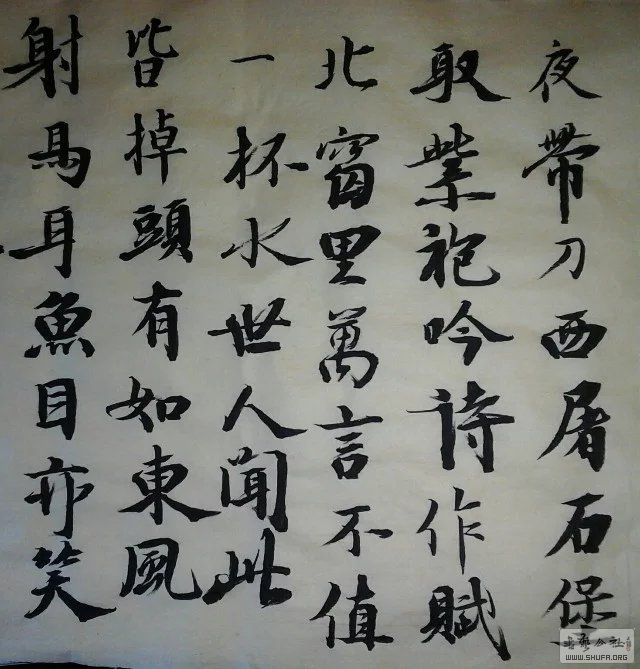 夜帶刀西屠石堡
取紫袍吟詩作賦
北窗里萬言不值
一杯水世人聞此
皆掉頭有如東風
射馬耳魚目亦笑
WWW.SHUFA.ORG